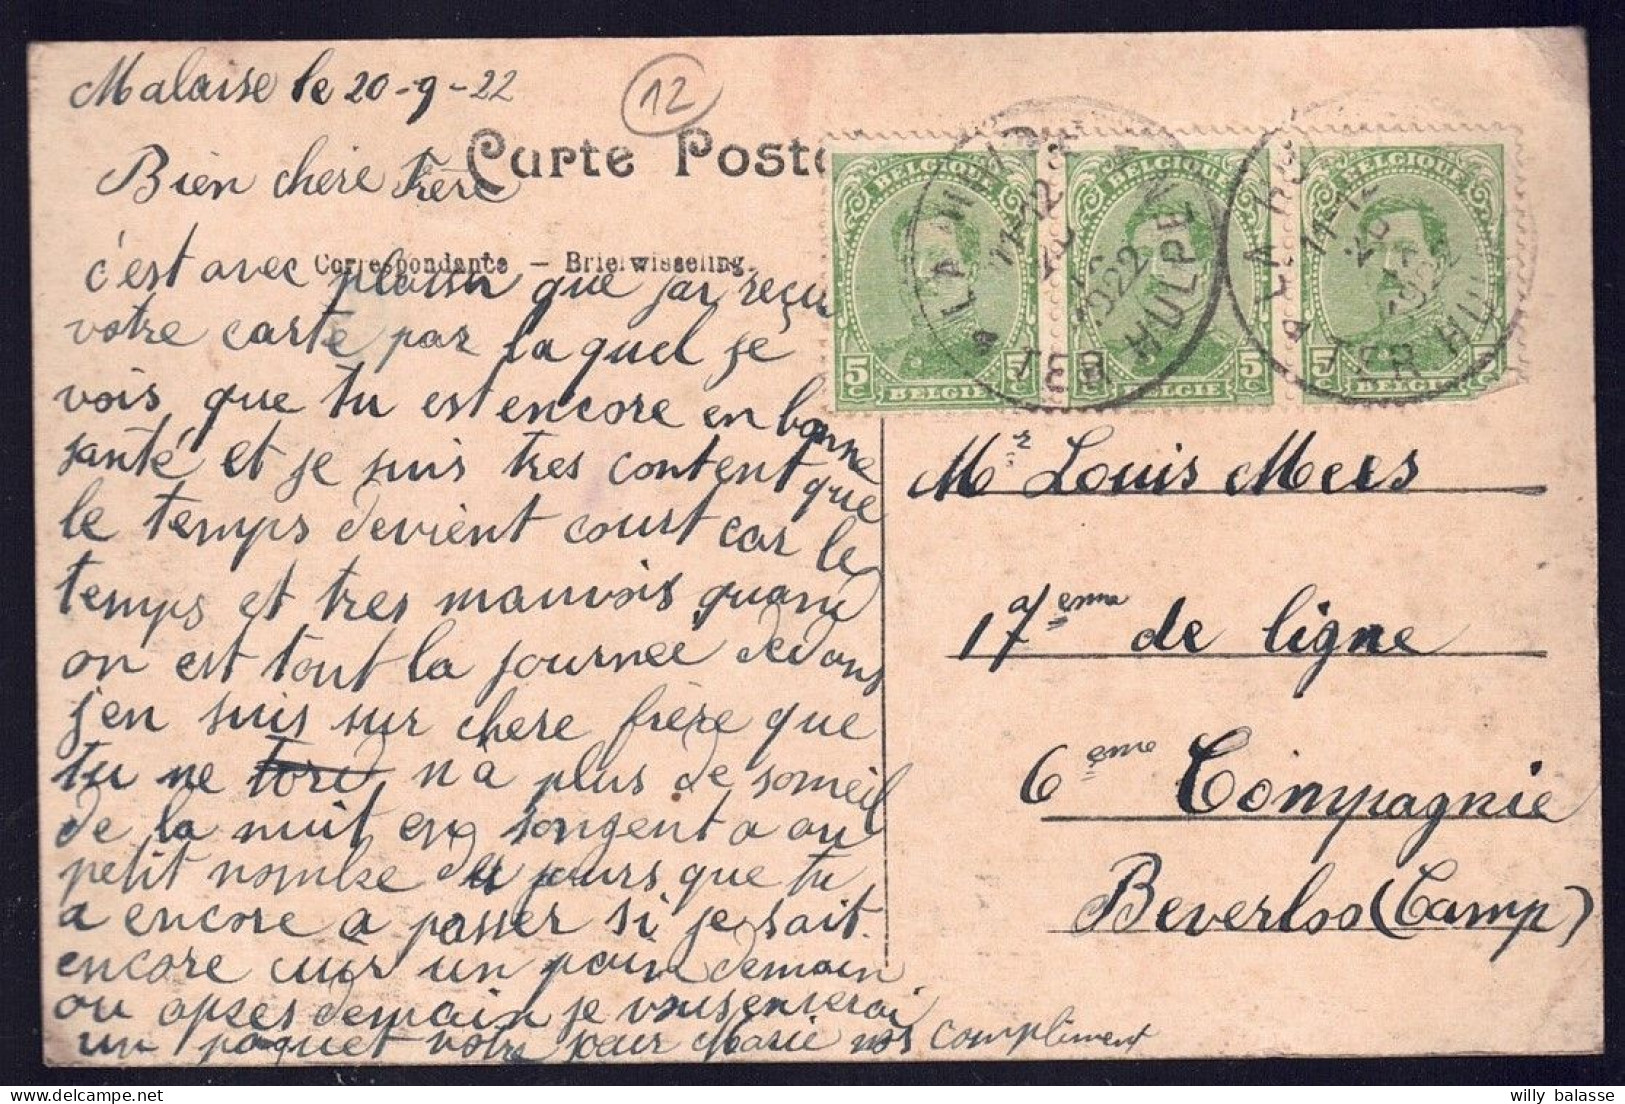 Malaise le 20-9-22
12
Carte Posta
Bien chere frère
Correspondance – Briefwisseling.
c'est avec plaisir que jai reçu
votre carte par laquel je
vois que tu est encore en bonne
santé et je suis tres content que
le temps devient court car le
temps et tres mauvois quand
on est tout la journee dedans
j'en suis sur chere frère que
tu ne n a plus de someil
de la nuit en songent a au
petit nombre de jours que tu
a encore a passer si je sait
encore cuir un pain demain
ou apses demain je vousenverai
un paquet votre soeur Marie nos compliment
BELGIQUE BELGIQUE BELGIQUE
5c 5c 5c 5c 5c
BELGIE BELGIE BELGIE
LA HULPE
TER HULPEN
11-12
1922
LA HULPE
TER HUL
11-12
20
1922
Mr Louis Mees
17eme de ligne
6ème Compagnie
Beverloo (Camp)
willy balasse delcampe.net